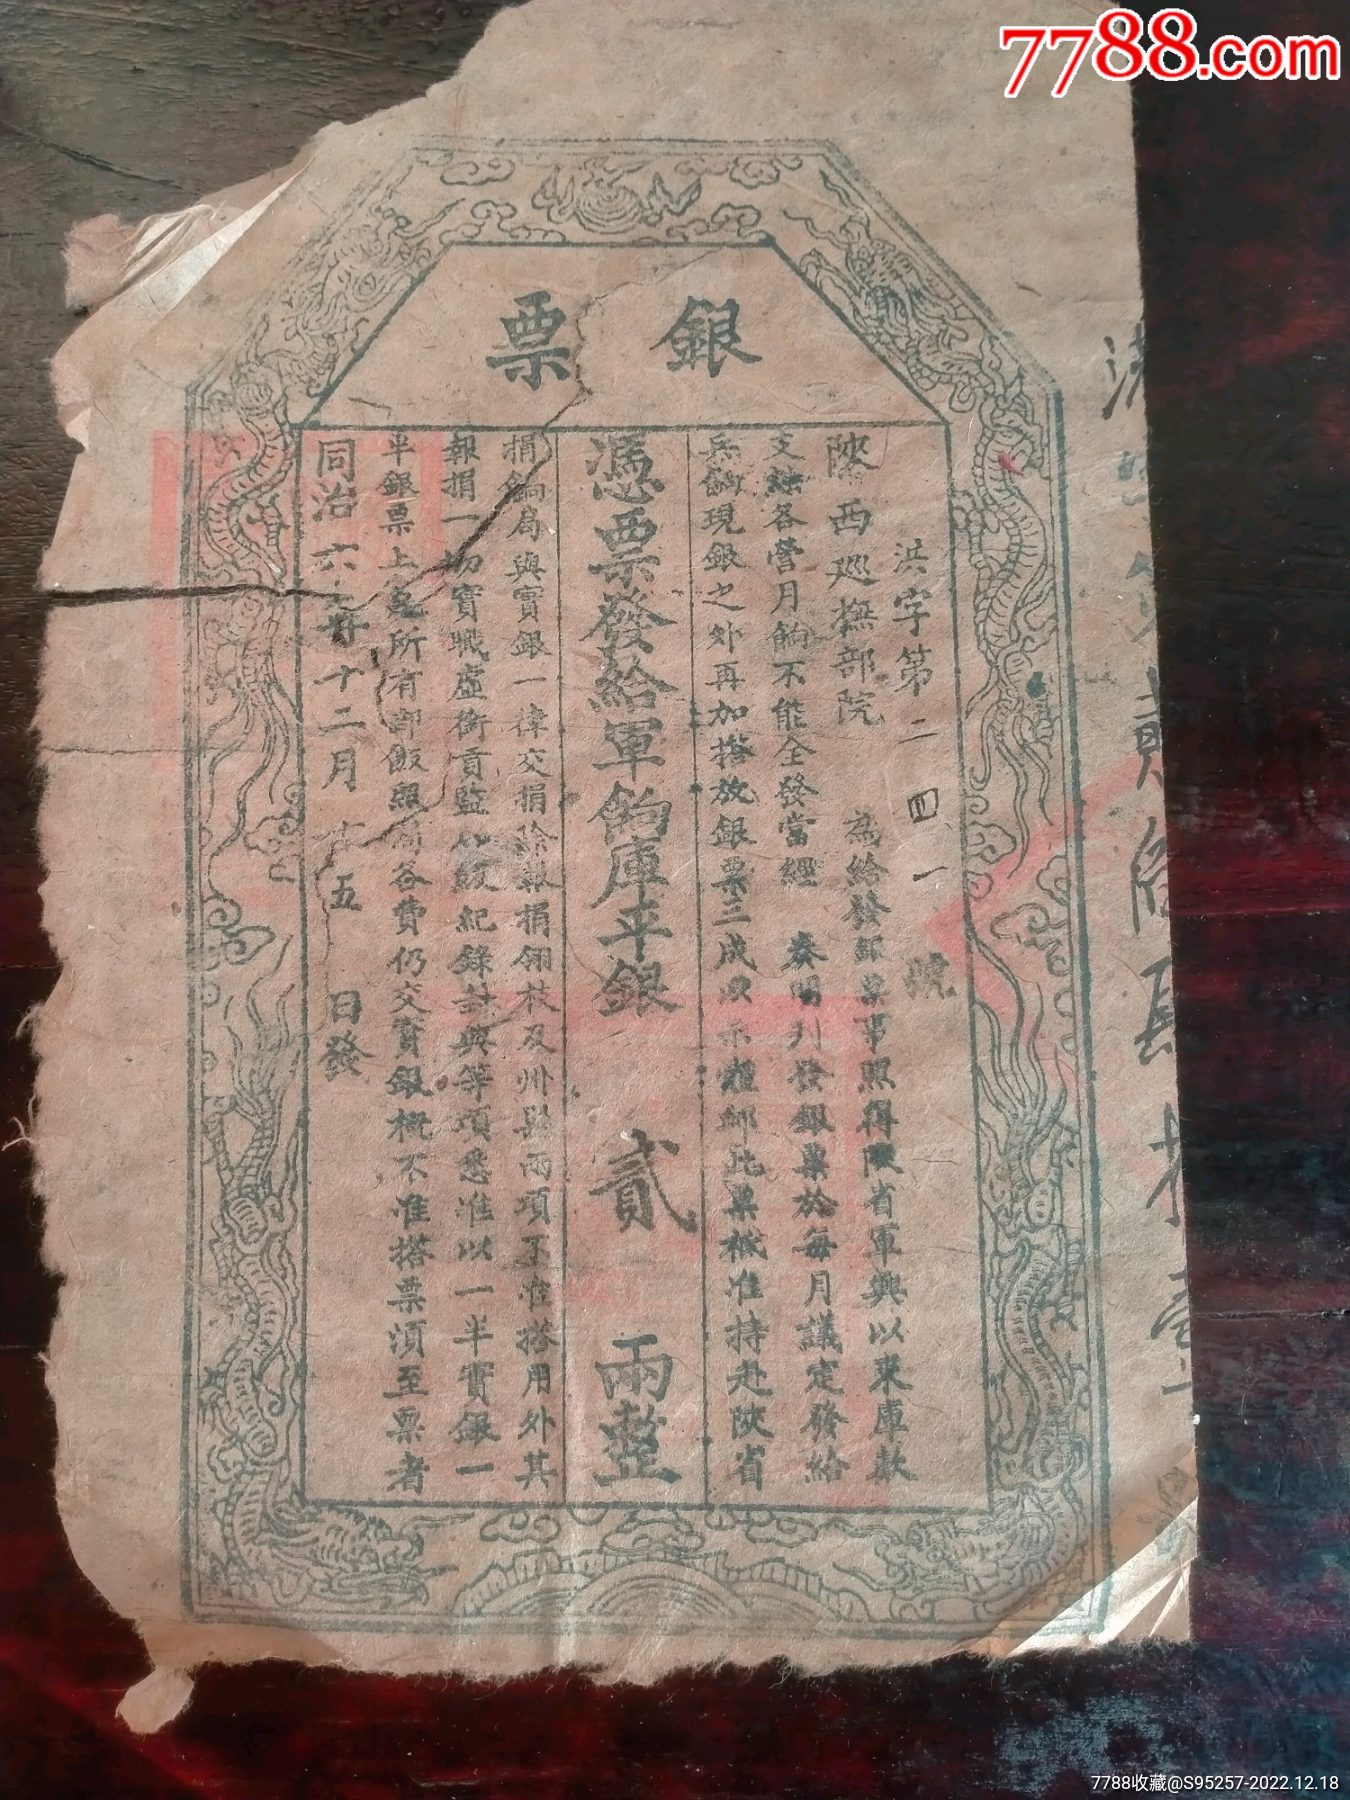 7788.com
銀票
洪字第二四一號
陝西巡撫部院 為給發銀票事照得陝省軍興以來庫款
支絀各營月餉不能全發當經 奏明刋發銀票於每月議定發給
兵餉現銀之外再加搭放銀票三成以示體卹此票秪准持赴陝省
憑票發給軍餉庫平銀 貳 兩整
捐餉局與實銀一律交捐除報捐翎枝及州縣兩項不准搭用外其
報捐一切實職虛銜貢監加級紀錄封典等項悉准以一半實銀一
半銀票上兌所有部飯照 各費仍交實銀概不准搭票須至票者
同治六年十二月十五 日發
7788收藏@S95257-2022.12.18